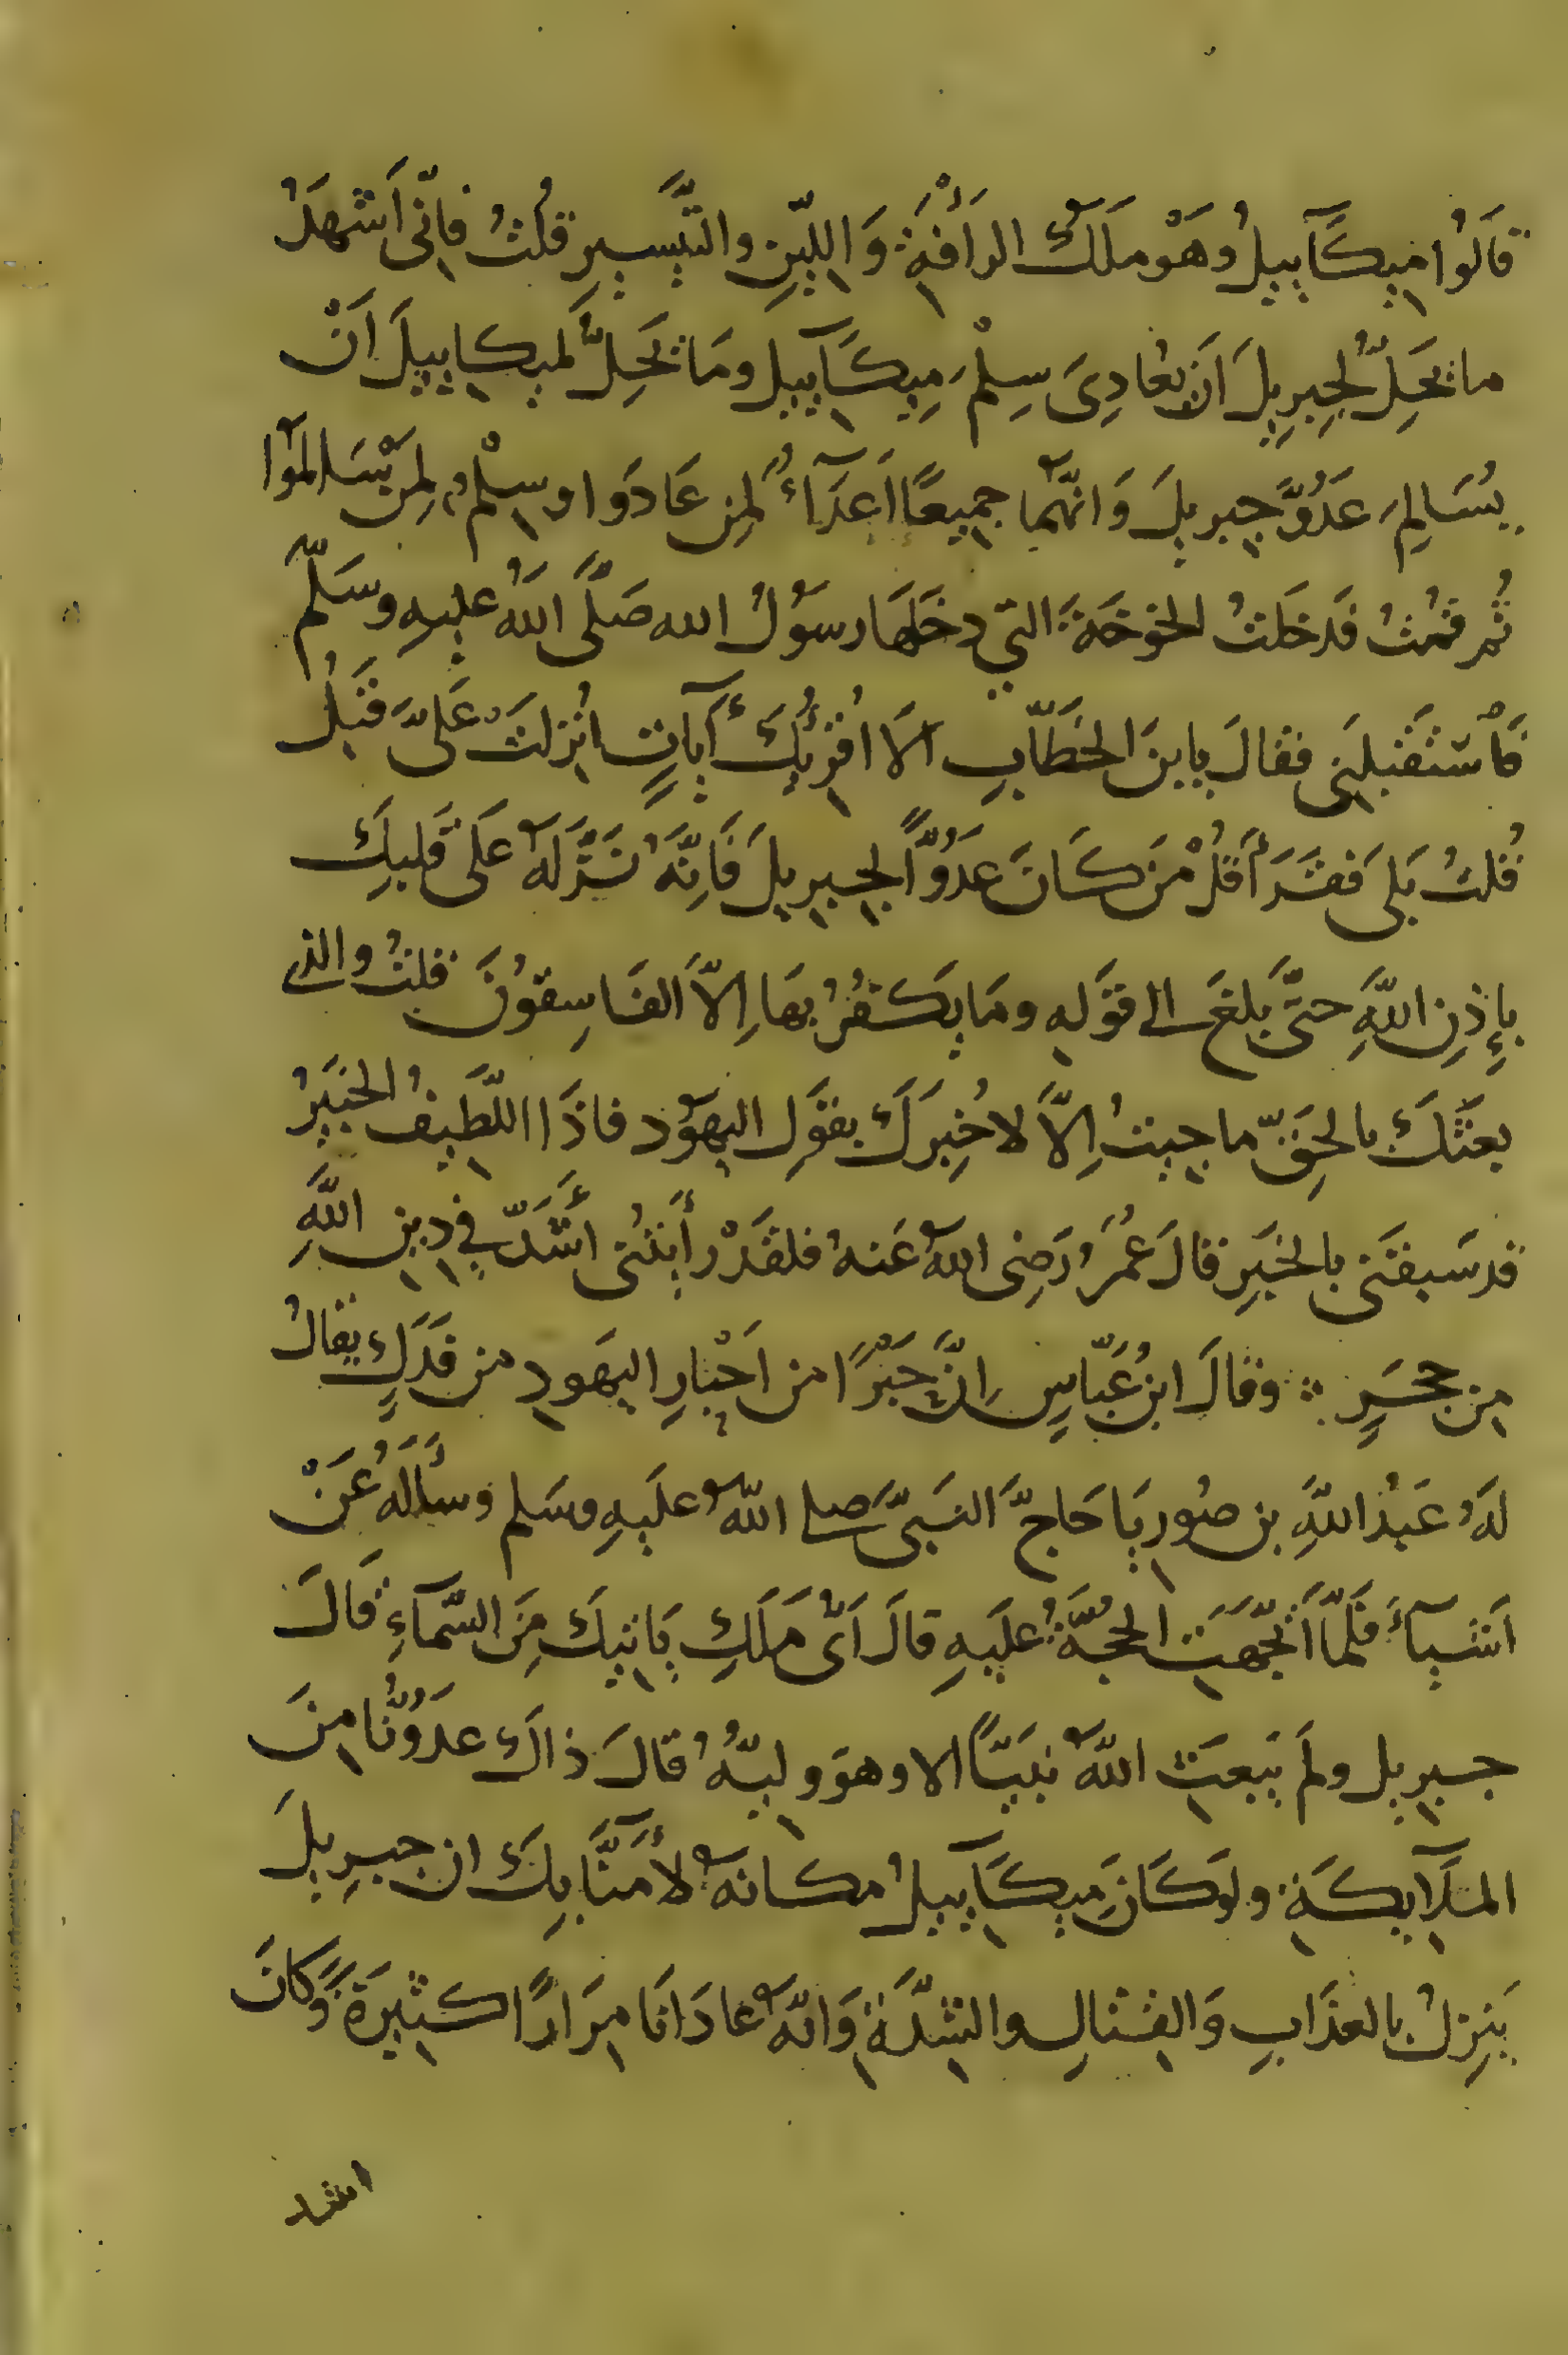 قَالُوا مِيكَآييلُ وَهْوَ مَلَكُ الرَأْفَةِ وَاللِّينِ والتَّيسيرِ قلتُ فَاِنّى اَشهَدُ
ما يَحِلُّ لِجِبرِيلَ اَن يُعَادِىَ سِلْمَ مِيكَآييلَ ومَا يَحِلُّ لميكاييلَ اَنْ
يُسَالِمَ عَدُوَّ جِبريلَ وَانَّهُما جميعًا اَعدَآءٌ لمِن عَادَوا وسِلْمٌ لِمنْ سَالَمُوا
ثُم قمْتُ فَدخَلتُ الخَوخَةَ التي دخَلهَا رسَوُلُ الله صَلَّى اللهُ عليهِ وسَلّم
فَأستَقبلَنى فقالَ يابنَ الخَطّابِ اَلَا اُقرِئُكَ آيَاتٍ انُزِلَتْ عَلىَّ قَبلُ
قُلتُ بَلىَ فَقَرَأ قُلْ مَن كَانَ عَدُوًّا لِجبرِيلَ فَاِنَّهُ نَزَّلَهُ عَلَى قَلبِكَ
بِإِذنِ اللَّهِ حتَّى بَلغَ الى قَولِهِ ومَا يَكفُرُ بهَا اِلاَّ الفَاسِقوُنَ قلتُ والذى
بعثَكَ بالحَقِّ ما جيتُ اِلاَّ لاُخبِرَكَ بقَولِ اليهَود فاذَا اللَّطِيفُ الخَبيرُ
قد سَبقَنى بالخَبَرِ قالَ عُمَرُ رَضِى اللهُ عَنهُ فلقَدْ رأيتُنى اشَدَّ في دينِ اللَّهِ
مِن حجَرٍ وقالَ ابنُ عَبّاسٍ اِنَّ حَبرًا من اَحبارِ اليهَودِ من فَدَكٍ يقالُ
لَهُ عَبدُ اللَّهِ بن صُوريَا حَاجَّ النَبىَّ صلى اللهُ علَيهِ وسَلم وسأَلَهُ عَنْ
اَشيآءَ فَلَمّا اتَّجَهَتِ الحجّةُ علَيهِ قالَ اَىُّ مَلَكٍ يَاتِيكَ مِنَ السَّمآءِ قَالَ
جبرِيل ولمَ يَبعَثِ اللهُ نَبيًّا الا وهوَ وليّهُ قالَ ذاكَ عدَوُّنَا مِنَ
الملَآيكَةِ ولَو كَانَ مِيكَآييلُ مكانَهُ لأَمَنَّا بِكَ ان جبرِيلَ
يَنزِلُ بالعذَابِ وَالقتالِ والشدَّةِ وَانّهُ عادَانَا مِرَارًا كثيرَةً وَكانَ
اشد